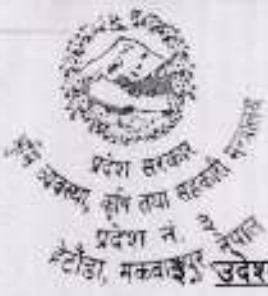 प्रदेश सरकार
भूमि व्यवस्था, कृषि तथा सहकारी मन्त्रालय
प्रदेश नं. ३
हेटौंडा, मकवानपुर, नेपाल
उदेश